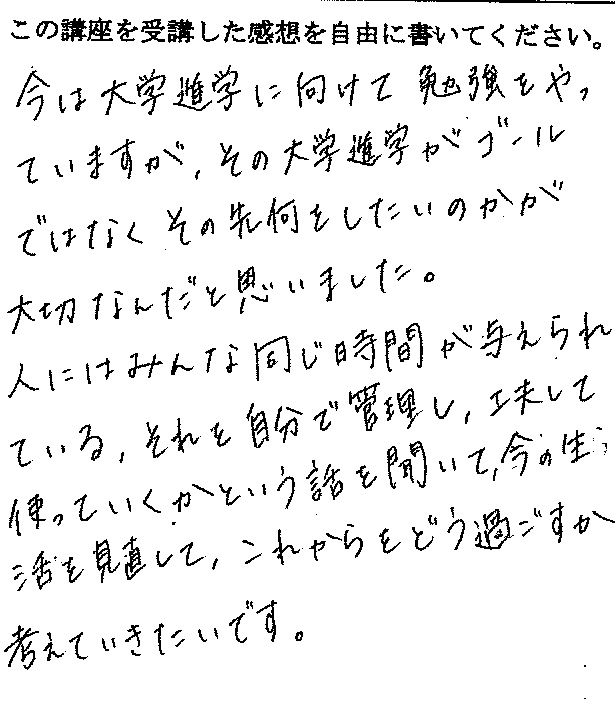 この講座を受講した感想を自由に書いてください。
今は大学進学に向けて勉強をやっ
ていますが、その大学進学がゴール
ではなくその先何をしたいのかが
大切なんだと思いました。
人にはみんな同じ時間が与えられ
ている、それを自分で管理し、工夫して
使っていくかという話を聞いて、今の生
活を見直して、これからをどう過ごすか
考えていきたいです。